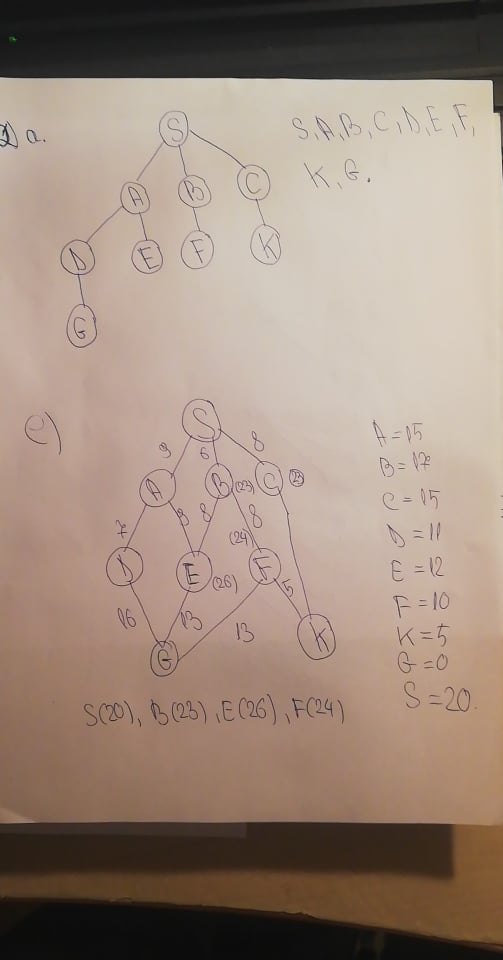 a.
S, A, B, C, D, E, F,
K, G.
S
A
B
C
D
E
F
K
G
e)
S
9
6
8
A
B
(23)
C
(23)
7
8
8
(24)
D
E
(26)
F
5
16
13
13
G
K
A = 15
B = 17
C = 15
D = 11
E = 12
F = 10
K = 5
G = 0
S = 20.
S(20), B(23), E(26), F(24)